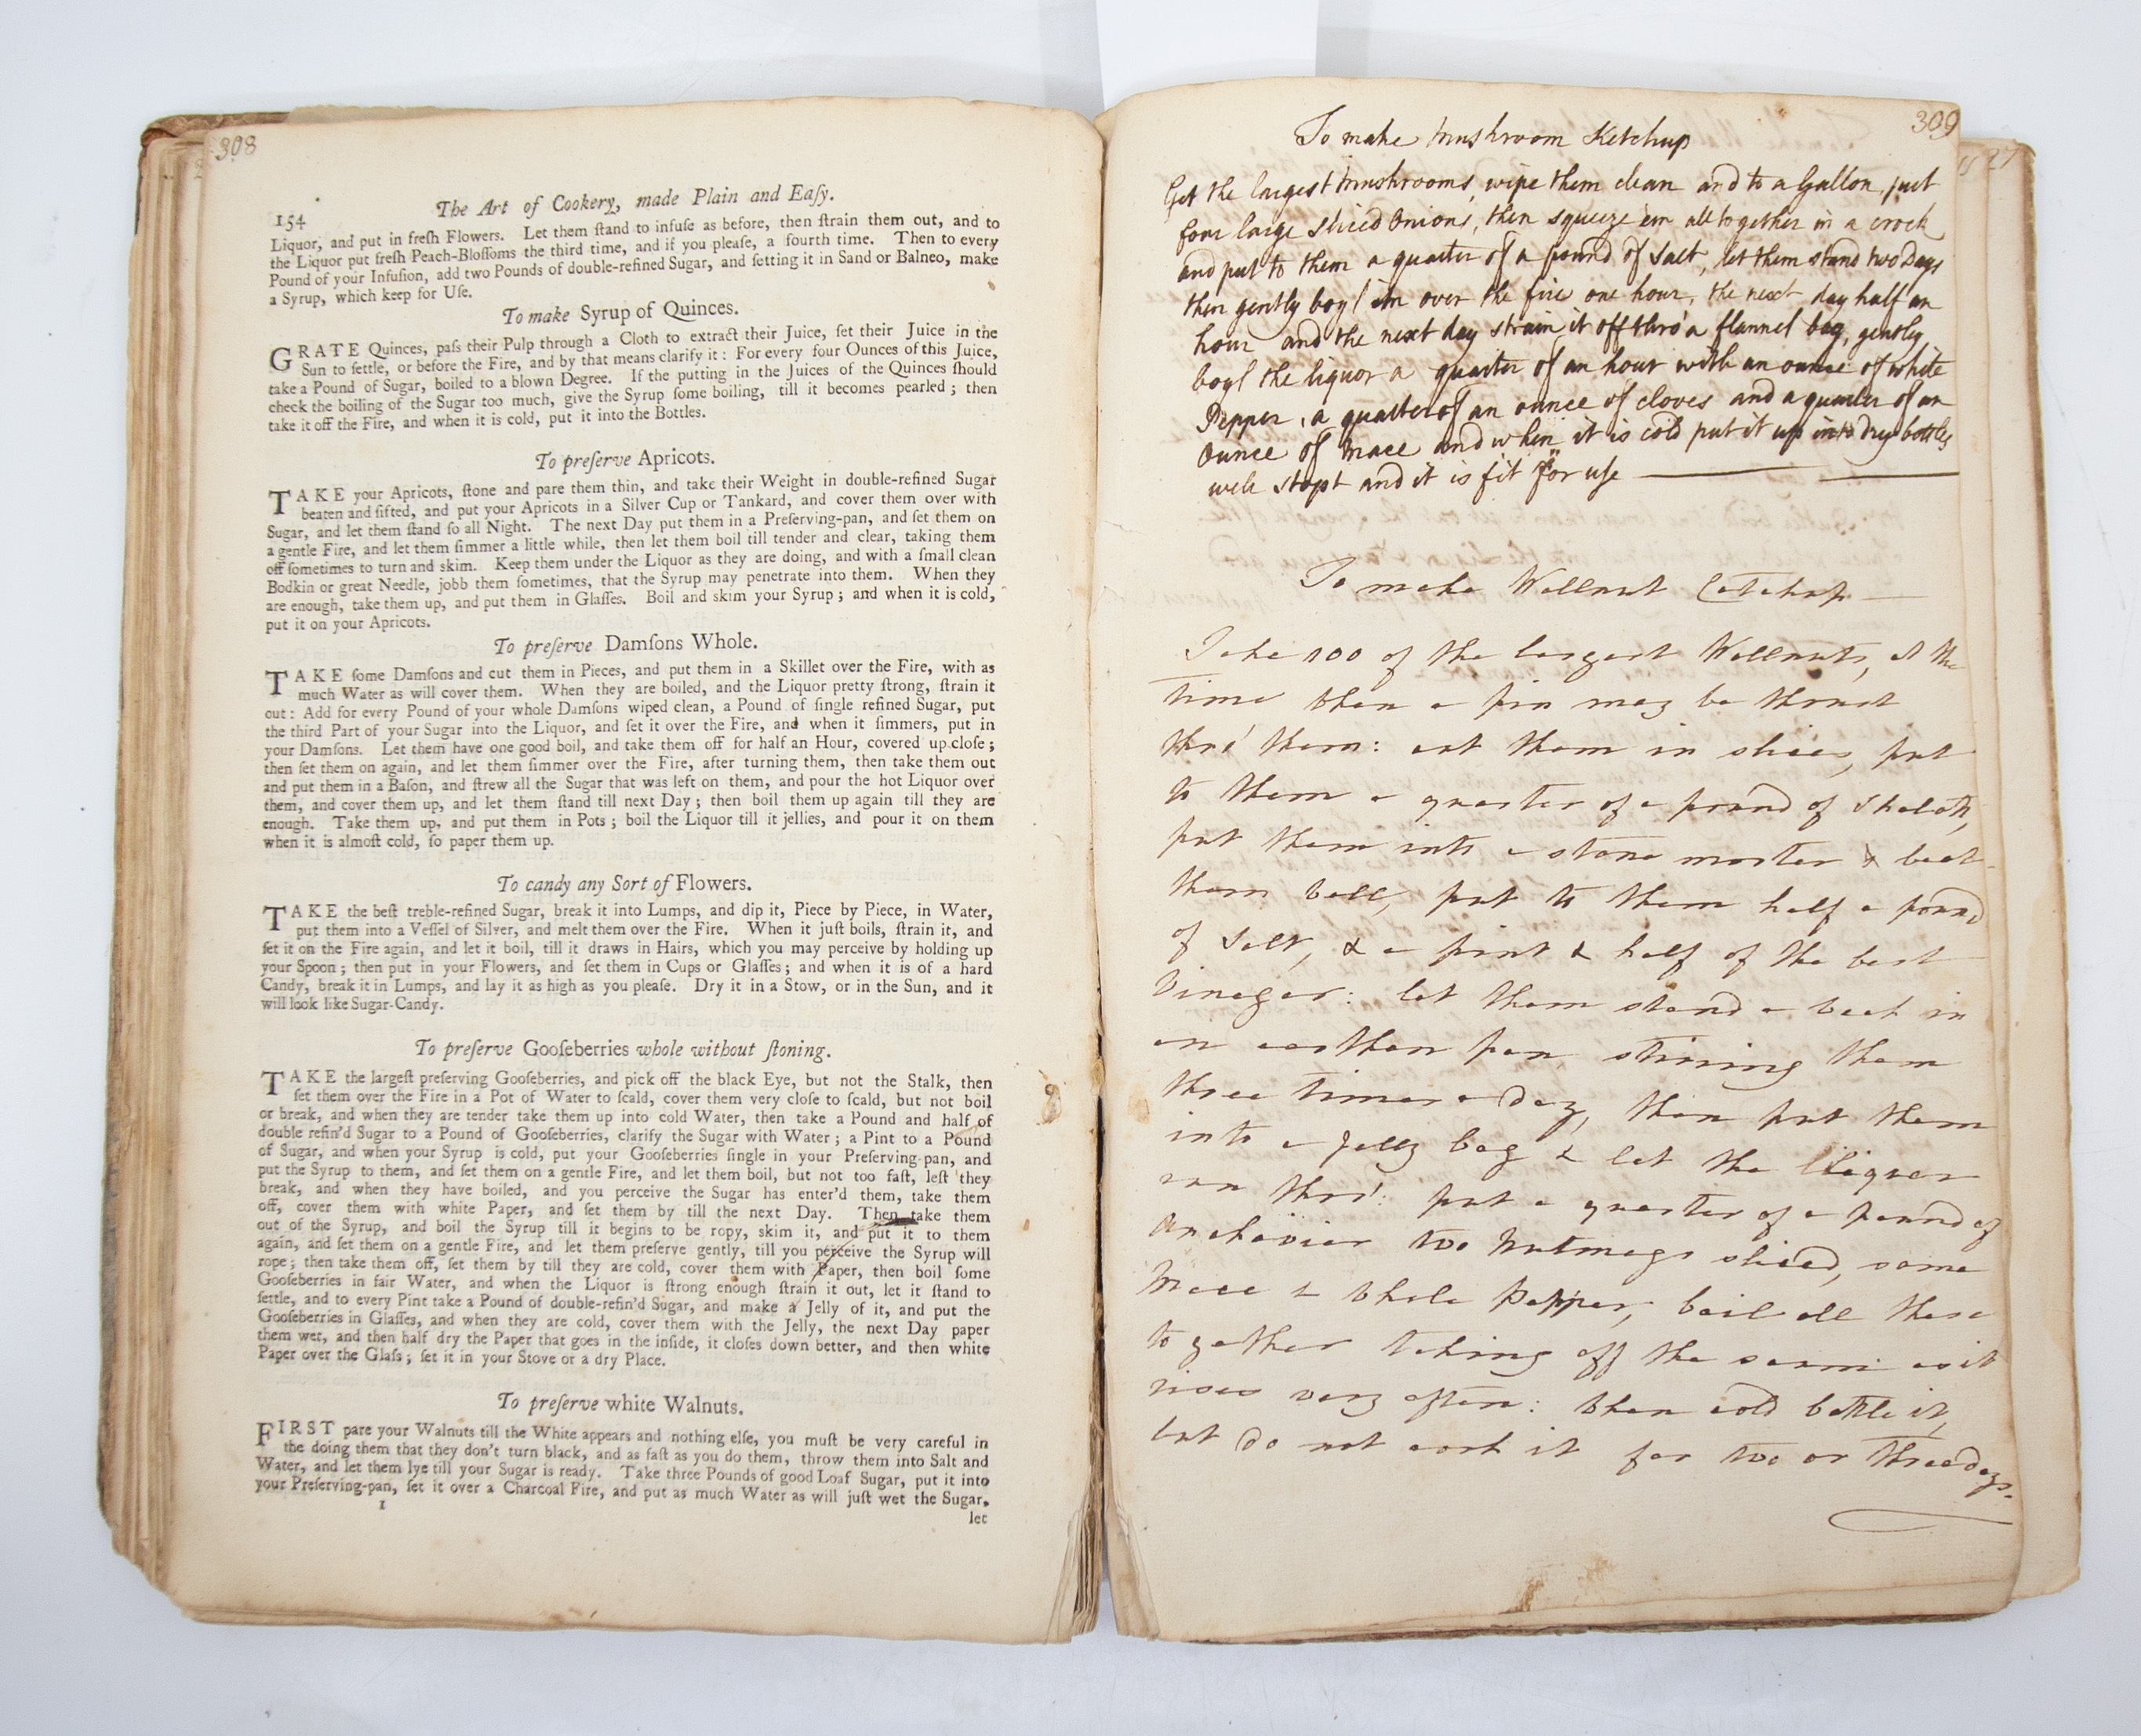 308
154
The Art of Cookery, made Plain and Eaſy.
Liquor, and put in freſh Flowers. Let them ſtand to infuſe as before, then ſtrain them out, and to
the Liquor put freſh Peach-Bloſſoms the third time, and if you pleaſe, a fourth time. Then to every
Pound of your Infuſion, add two Pounds of double-refined Sugar, and ſetting it in Sand or Balneo, make
a Syrup, which keep for Uſe.
To make Syrup of Quinces.
GRATE Quinces, paſs their Pulp through a Cloth to extract their Juice, ſet their Juice in the
Sun to ſettle, or before the Fire, and by that means clarify it: For every four Ounces of this Juice,
take a Pound of Sugar, boiled to a blown Degree. If the putting in the Juices of the Quinces ſhould
check the boiling of the Sugar too much, give the Syrup ſome boiling, till it becomes pearled; then
take it off the Fire, and when it is cold, put it into the Bottles.
To preſerve Apricots.
TAKE your Apricots, ſtone and pare them thin, and take their Weight in double-refined Sugar
beaten and ſifted, and put your Apricots in a Silver Cup or Tankard, and cover them over with
Sugar, and let them ſtand ſo all Night. The next Day put them in a Preſerving-pan, and ſet them on
a gentle Fire, and let them ſimmer a little while, then let them boil till tender and clear, taking them
off ſometimes to turn and skim. Keep them under the Liquor as they are doing, and with a ſmall clean
Bodkin or great Needle, jobb them ſometimes, that the Syrup may penetrate into them. When they
are enough, take them up, and put them in Glaſſes. Boil and skim your Syrup; and when it is cold,
put it on your Apricots.
To preſerve Damſons Whole.
TAKE ſome Damſons and cut them in Pieces, and put them in a Skillet over the Fire, with as
much Water as will cover them. When they are boiled, and the Liquor pretty ſtrong, ſtrain it
out: Add for every Pound of your whole Damſons wiped clean, a Pound of ſingle refined Sugar, put
the third Part of your Sugar into the Liquor, and ſet it over the Fire, and when it ſimmers, put in
your Damſons. Let them have one good boil, and take them off for half an Hour, covered up cloſe;
then ſet them on again, and let them ſimmer over the Fire, after turning them, then take them out
and put them in a Baſon, and ſtrew all the Sugar that was left on them, and pour the hot Liquor over
them, and cover them up, and let them ſtand till next Day; then boil them up again till they are
enough. Take them up, and put them in Pots; boil the Liquor till it jellies, and pour it on them
when it is almoſt cold, ſo paper them up.
To candy any Sort of Flowers.
TAKE the beſt treble-refined Sugar, break it into Lumps, and dip it, Piece by Piece, in Water,
put them into a Veſſel of Silver, and melt them over the Fire. When it juſt boils, ſtrain it, and
ſet it on the Fire again, and let it boil, till it draws in Hairs, which you may perceive by holding up
your Spoon; then put in your Flowers, and ſet them in Cups or Glaſſes; and when it is of a hard
Candy, break it in Lumps, and lay it as high as you pleaſe. Dry it in a Stow, or in the Sun, and it
will look like Sugar-Candy.
To preſerve Gooſeberries whole without ſtoning.
TAKE the largeſt preſerving Gooſeberries, and pick off the black Eye, but not the Stalk, then
ſet them over the Fire in a Pot of Water to ſcald, cover them very cloſe to ſcald, but not boil
or break, and when they are tender take them up into cold Water, then take a Pound and half of
double refin'd Sugar to a Pound of Gooſeberries, clarify the Sugar with Water; a Pint to a Pound
of Sugar, and when your Syrup is cold, put your Gooſeberries ſingle in your Preſerving-pan, and
put the Syrup to them, and ſet them on a gentle Fire, and let them boil, but not too faſt, leſt they
break, and when they have boiled, and you perceive the Sugar has enter'd them, take them
off, cover them with white Paper, and ſet them by till the next Day. Then take them
out of the Syrup, and boil the Syrup till it begins to be ropy, skim it, and put it to them
again, and ſet them on a gentle Fire, and let them preſerve gently, till you perceive the Syrup will
rope; then take them off, ſet them by till they are cold, cover them with Paper, then boil ſome
Gooſeberries in fair Water, and when the Liquor is ſtrong enough ſtrain it out, let it ſtand to
ſettle, and to every Pint take a Pound of double-refin'd Sugar, and make a Jelly of it, and put the
Gooſeberries in Glaſſes, and when they are cold, cover them with the Jelly, the next Day paper
them wet, and then half dry the Paper that goes in the inſide, it cloſes down better, and then white
Paper over the Glaſs; ſet it in your Stove or a dry Place.
To preſerve white Walnuts.
FIRST pare your Walnuts till the White appears and nothing elſe, you muſt be very careful in
the doing them that they don't turn black, and as faſt as you do them, throw them into Salt and
Water, and let them lye till your Sugar is ready. Take three Pounds of good Loaf Sugar, put it into
your Preſerving-pan, ſet it over a Charcoal Fire, and put as much Water as will juſt wet the Sugar,
1
let
309
To make Mushroom Ketchup
Get the largest Mushrooms, wipe them clean and to a Gallon, put
four large Sliced Onions, then squeeze 'em all together in a crock
and put to them a quarter of a pound of Salt, let them stand two Days
then gently boyl 'em over the fire one hour, the next day half an
hour and the next day strain it off thro' a flannel bag, gently
boyl the liquor a quarter of an hour with an ounce of white
Pepper, a quarter of an ounce of cloves and a quarter of an
Ounce of Mace and when it is cold put it up into dry bottles
well stopt and it is fit for use
To make Wallnut Catchup
Take 100 of the largest Wallnuts, at the
time when a pin may be thrust
thro' them: cut them in slices, put
to them a quarter of a pound of Shalots,
put them into a stone mortar & beat
them well, put to them half a pound
of Salt, & a pint & half of the best
Vinegar: let them stand a week in
an earthen pan, stirring them
three times a day, then put them
into a jelly bag & let the liquor
run thro': put a quarter of a pound of
Anchovies two Nutmegs sliced, some
Mace & whole Pepper, boil all these
together taking off the scum as it
rises very often: when cold bottle it,
but do not cork it for two or three days.
27